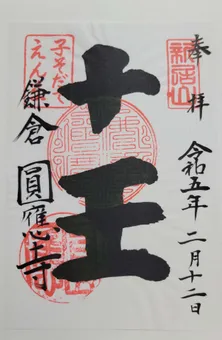 新居山
奉拝
令和五年二月十二日
十王
子そだて
えん
鎌倉
圓應寺